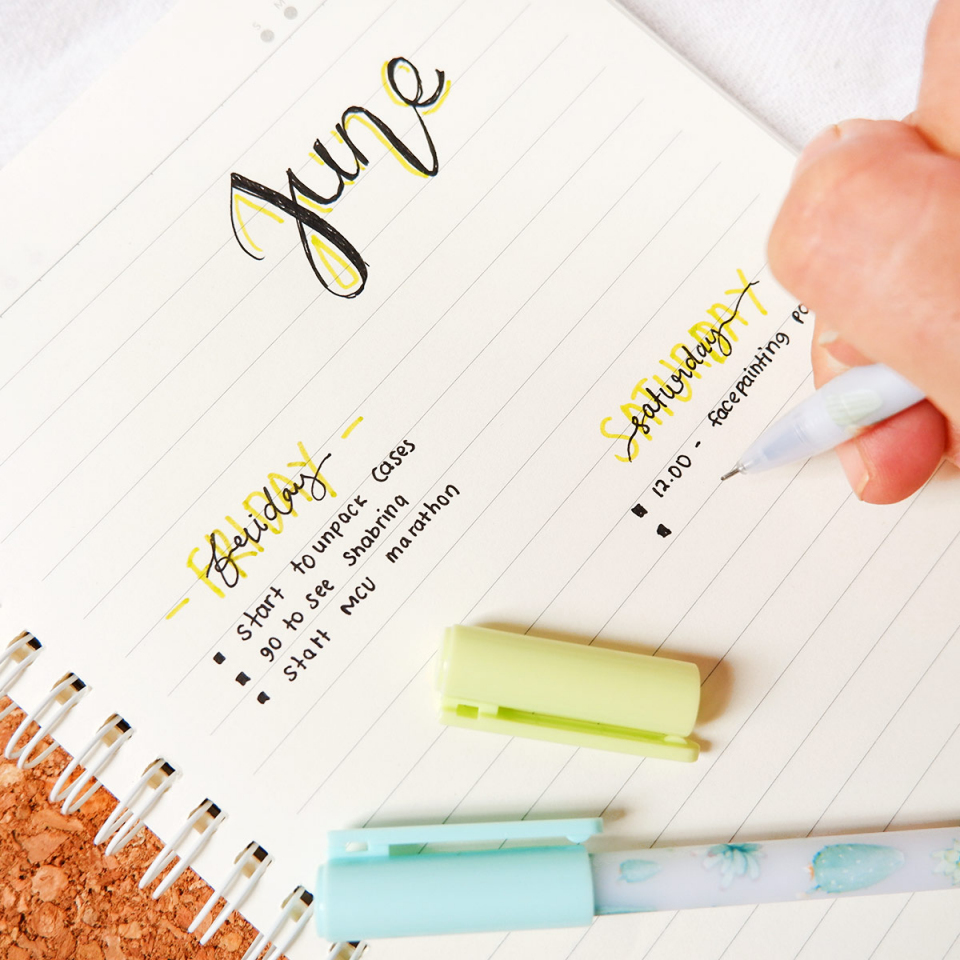 June
FRIDAY
friday
start to unpack cases
go to see Shabrina
start MCU marathon
SATURDAY
saturday
12.00 - facepainting